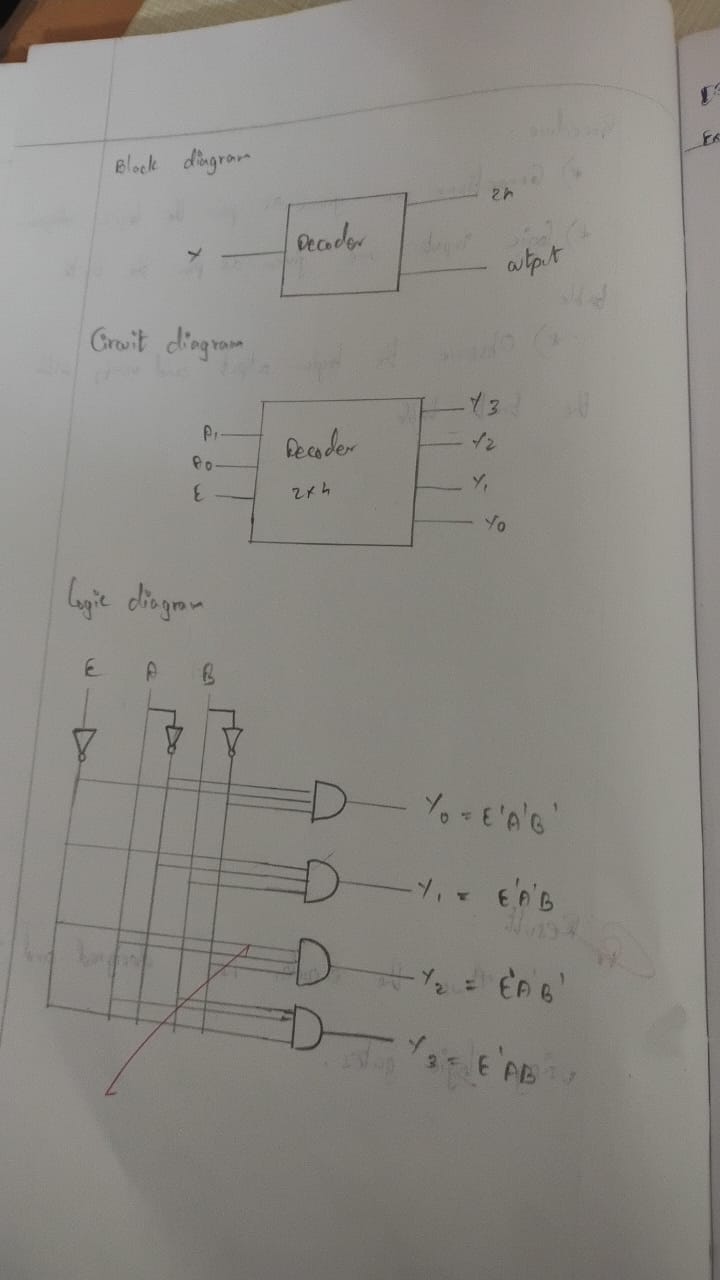 Block diagram
X Decoder 2n
output
Circuit diagram
A1 Decoder Y3
A0 2x4 Y2
E Y1
Y0
Logic diagram
E A B
Y0 = E'A'B'
Y1 = E'A'B
Y2 = E'AB'
Y3 = E'AB